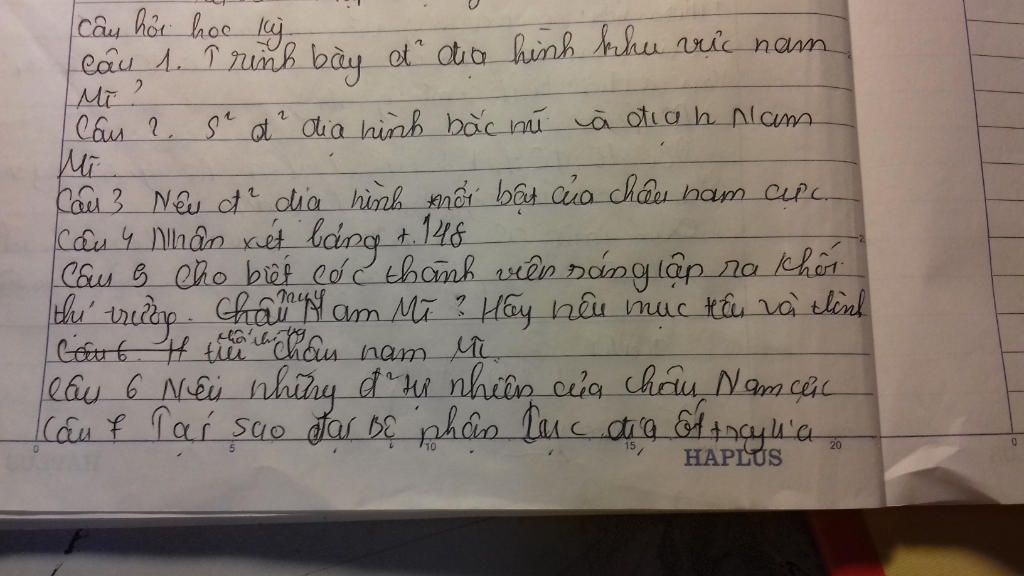 Câu hỏi học kỳ
Câu 1. Trình bày đ² địa hình khu vực nam
Mĩ?
Câu 2. S² đ² địa hình bắc mĩ và địa h Nam
Mĩ.
Câu 3 Nêu đ² địa hình nổi bật của châu nam cực.
Câu 4 Nhận xét bảng t.148
Câu 5 Cho biết các thành viên sáng lập ra khối
thị trường. Châu Nam Mĩ? Hãy nêu mục tiêu và
châu nam Mĩ.
Câu 6 Nêu những đ² tự nhiên của châu Nam cực
Câu 7 Tại sao đại bộ phận lục địa Ốt
0 5 10 15 20 0
HAPLUS